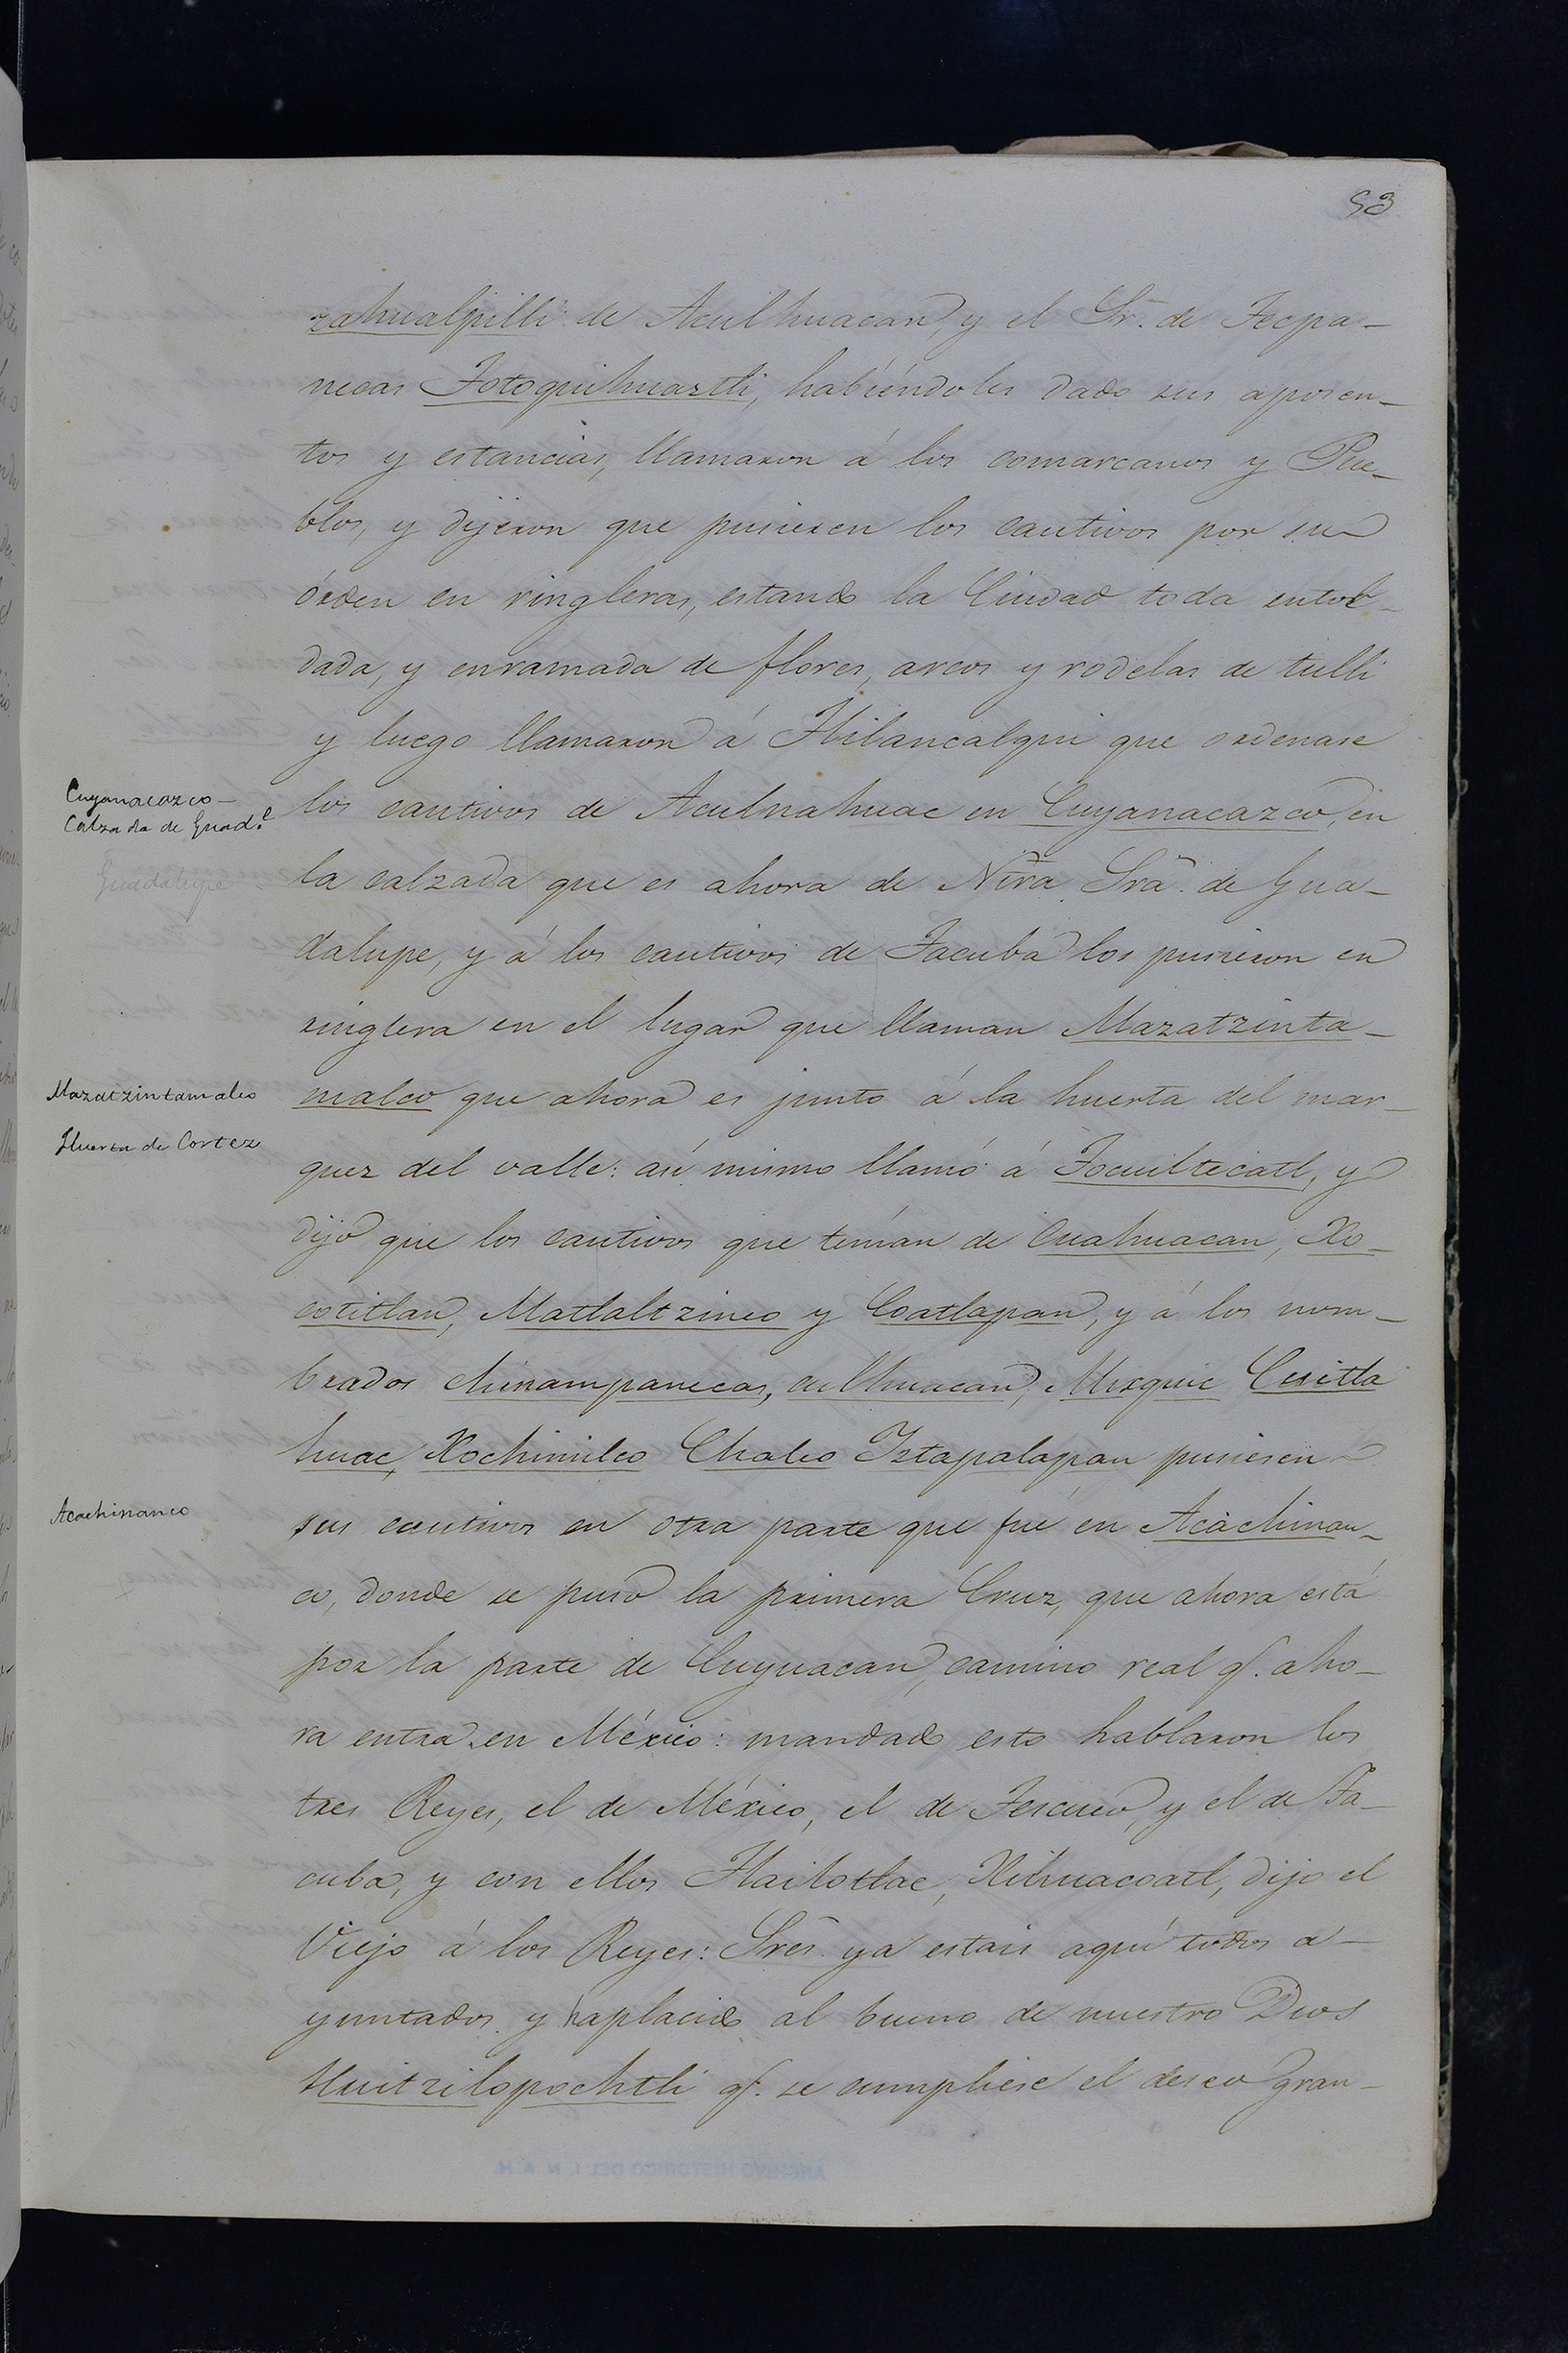 53
zahualpilli de Aculhuacan, y el Sr. de Tecpa-
necas Totoquihuaztli, habiéndoles dado sus aposen-
tos y estancias, llamaron á los comarcanos y Pue-
blos, y dijeron que pusiesen los cautivos por su
órden en ringleras, estando la Ciudad toda entol-
dada, y enramada de flores, arcos y rodelas de tulli
y luego llamaron á Tlilancalqui que ordenase
Cuyanacazco-
Calzada de Guad.e
Guadalupe
los cautivos de Aculnahuac en Cuyanacazco, en
la calzada que es ahora de Ntra. Sra. de Gua-
dalupe, y á los cautivos de Tacuba los pusieron en
ringlera en el lugar que llaman Mazatzinta-
Mazatzintamalco
Huerta de Cortez
malco que ahora es junto á la huerta del mar-
quez del valle: así mismo llamó á Tocuiltecatl, y
dijo que los cautivos que tenían de Cuahuacan, Xo-
cotitlan, Matlaltzinco y Coatlapan, y á los nom-
brados chinampanecas, culhuacan, Mizquic Cuitla
huac, Xochimilco Chalco Iztapalapan pusiesen
Acachinanco
sus cautivos en otra parte que fué en Acachinan-
co, donde se puso la primera Cruz, que ahora está
por la parte de Cuyuacan, camino real q. aho-
ra entra en México: mandado esto hablaron los
tres Reyes, el de México, el de Tescuco, y el de Ta-
cuba, y con ellos Tlailotlac, Xihuacoatl, dijo el
Viejo á los Reyes: Sres. ya estais aquí todos a-
yuntados y haplacido al bueno de nuestro Dios
Huitzilopochtli q. se cumpliese el deseo gran-
ARCHIVO HISTORICO DEL I. N. A. H.